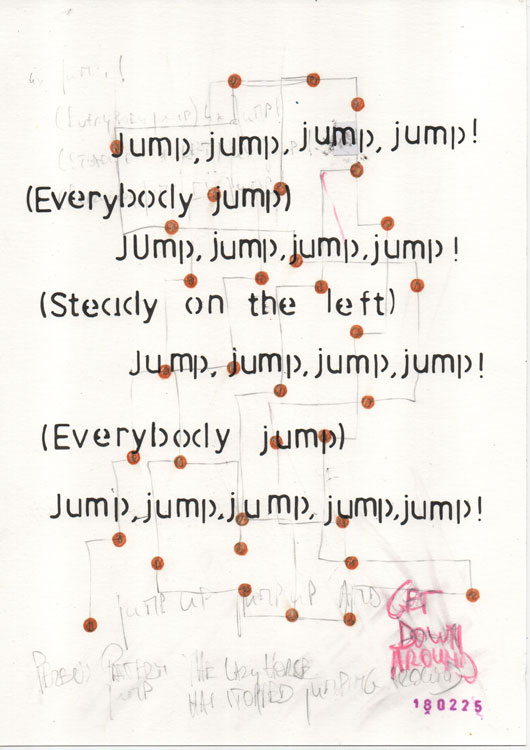 Jump, jump, jump, jump!
(Everybody jump)
JUmp, jump, jump, jump!
(Steady on the left)
Jump, jump, jump, jump!
(Everybody jump)
Jump, jump, jump, jump, jump!
jUMP UP jUMP UP AND
GET
DOWN
AROUND
PATTERN THE LAZY HORSE
jUMP HAS STOPPED jUMPING
180225